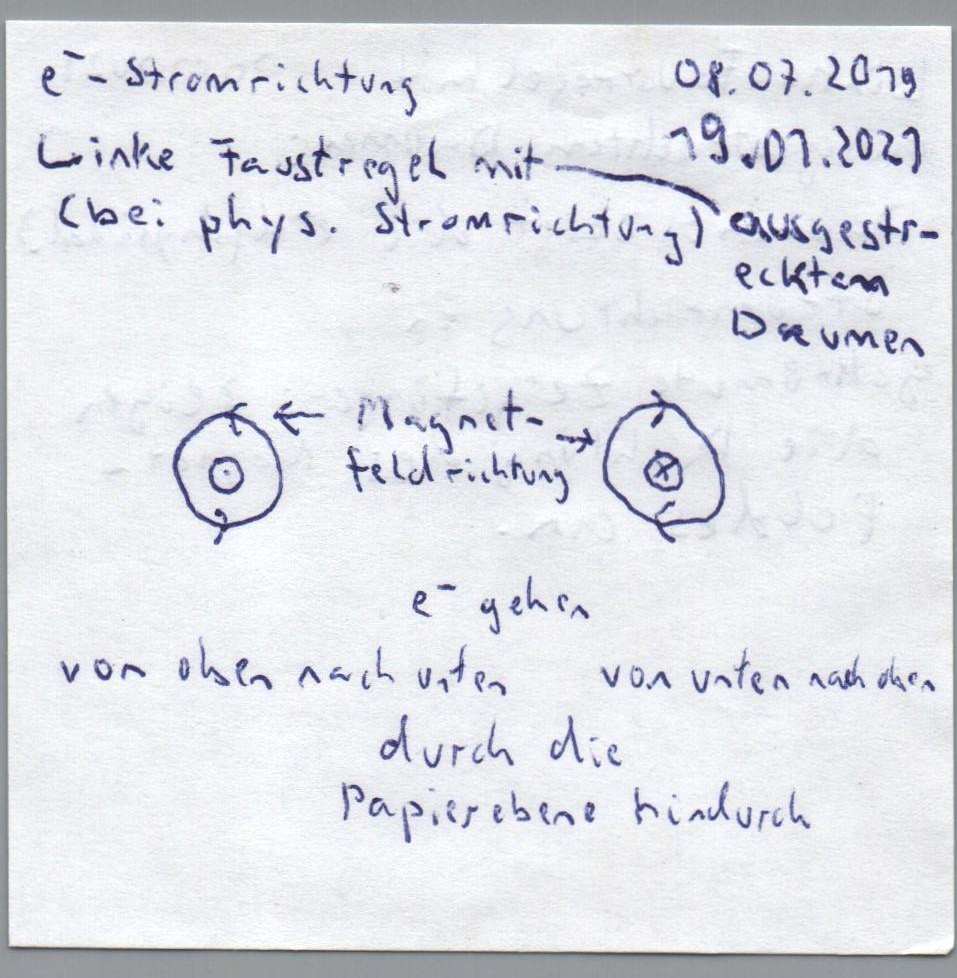 e⁻-Stromrichtung 08.07.2019
19.01.2021
Linke Faustregel mit ausgestr-
ecktem
Daumen
(bei phys. Stromrichtung)
← Magnet- →
feldrichtung
e⁻ gehen
von oben nach unten von unten nach oben
durch die
Papierebene hindurch